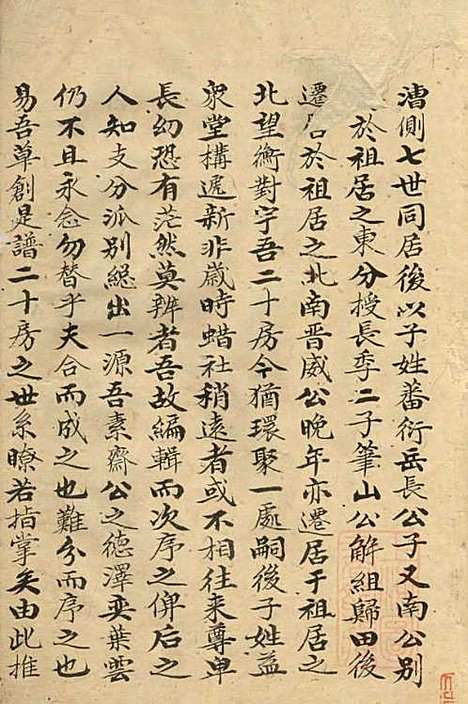 漕側七世同居後以子姓蕃衍岳長公子又南公別
於祖居之東分授長季二子筆山公解組歸田後
遷居於祖居之北南晋威公晚年亦遷居于祖居之
北望衡對宇吾二十房今猶環聚一處嗣後子姓益
衆堂構遞新非歲時蜡社稍遠者或不相往来尊卑
長幼恐有茫然莫辨者吾故編輯而次序之俾后之
人知支分派別総出一源吾素齋公之德澤奕葉雲
仍不且永念勿替乎夫合而成之也難分而序之也
易吾草創是譜二十房之世系瞭若指掌矣由此推